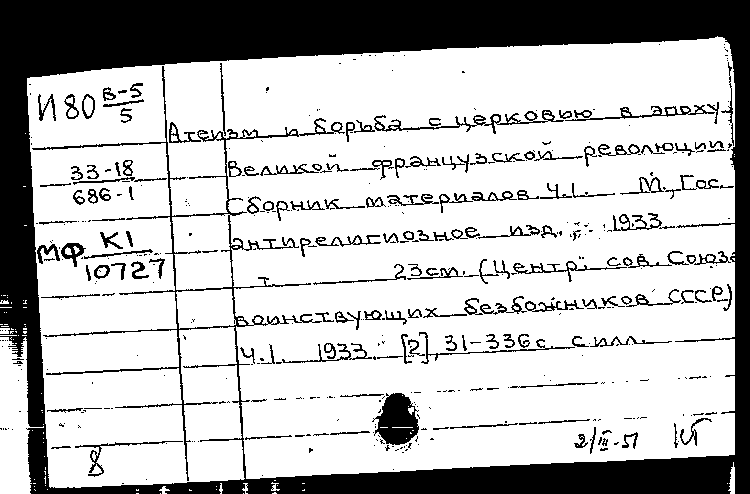 И 80 В-5/5
Атеизм и борьба с церковью в эпоху
33-18
686-1
Великой французской революции.
Сборник материалов. Ч.1. М., Гос.
МФ К1
10727
антирелигиозное изд., 1933
т. 23 см. (Центр. сов. Союза
воинствующих безбожников СССР)
Ч.1. 1933. [2], 31-336 с. с илл.
8
2/III-51